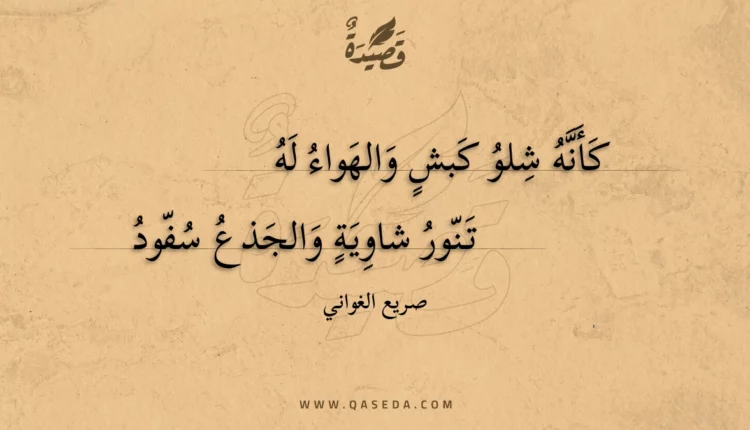 قَصِيْدَةٌ
كَأَنَّهُ شِلوُ كَبشٍ وَالهَواءُ لَهُ
تَنّورُ شاوِيَةٍ وَالجَذعُ سُفّودُ
صريع الغواني
WWW.QASEDA.COM